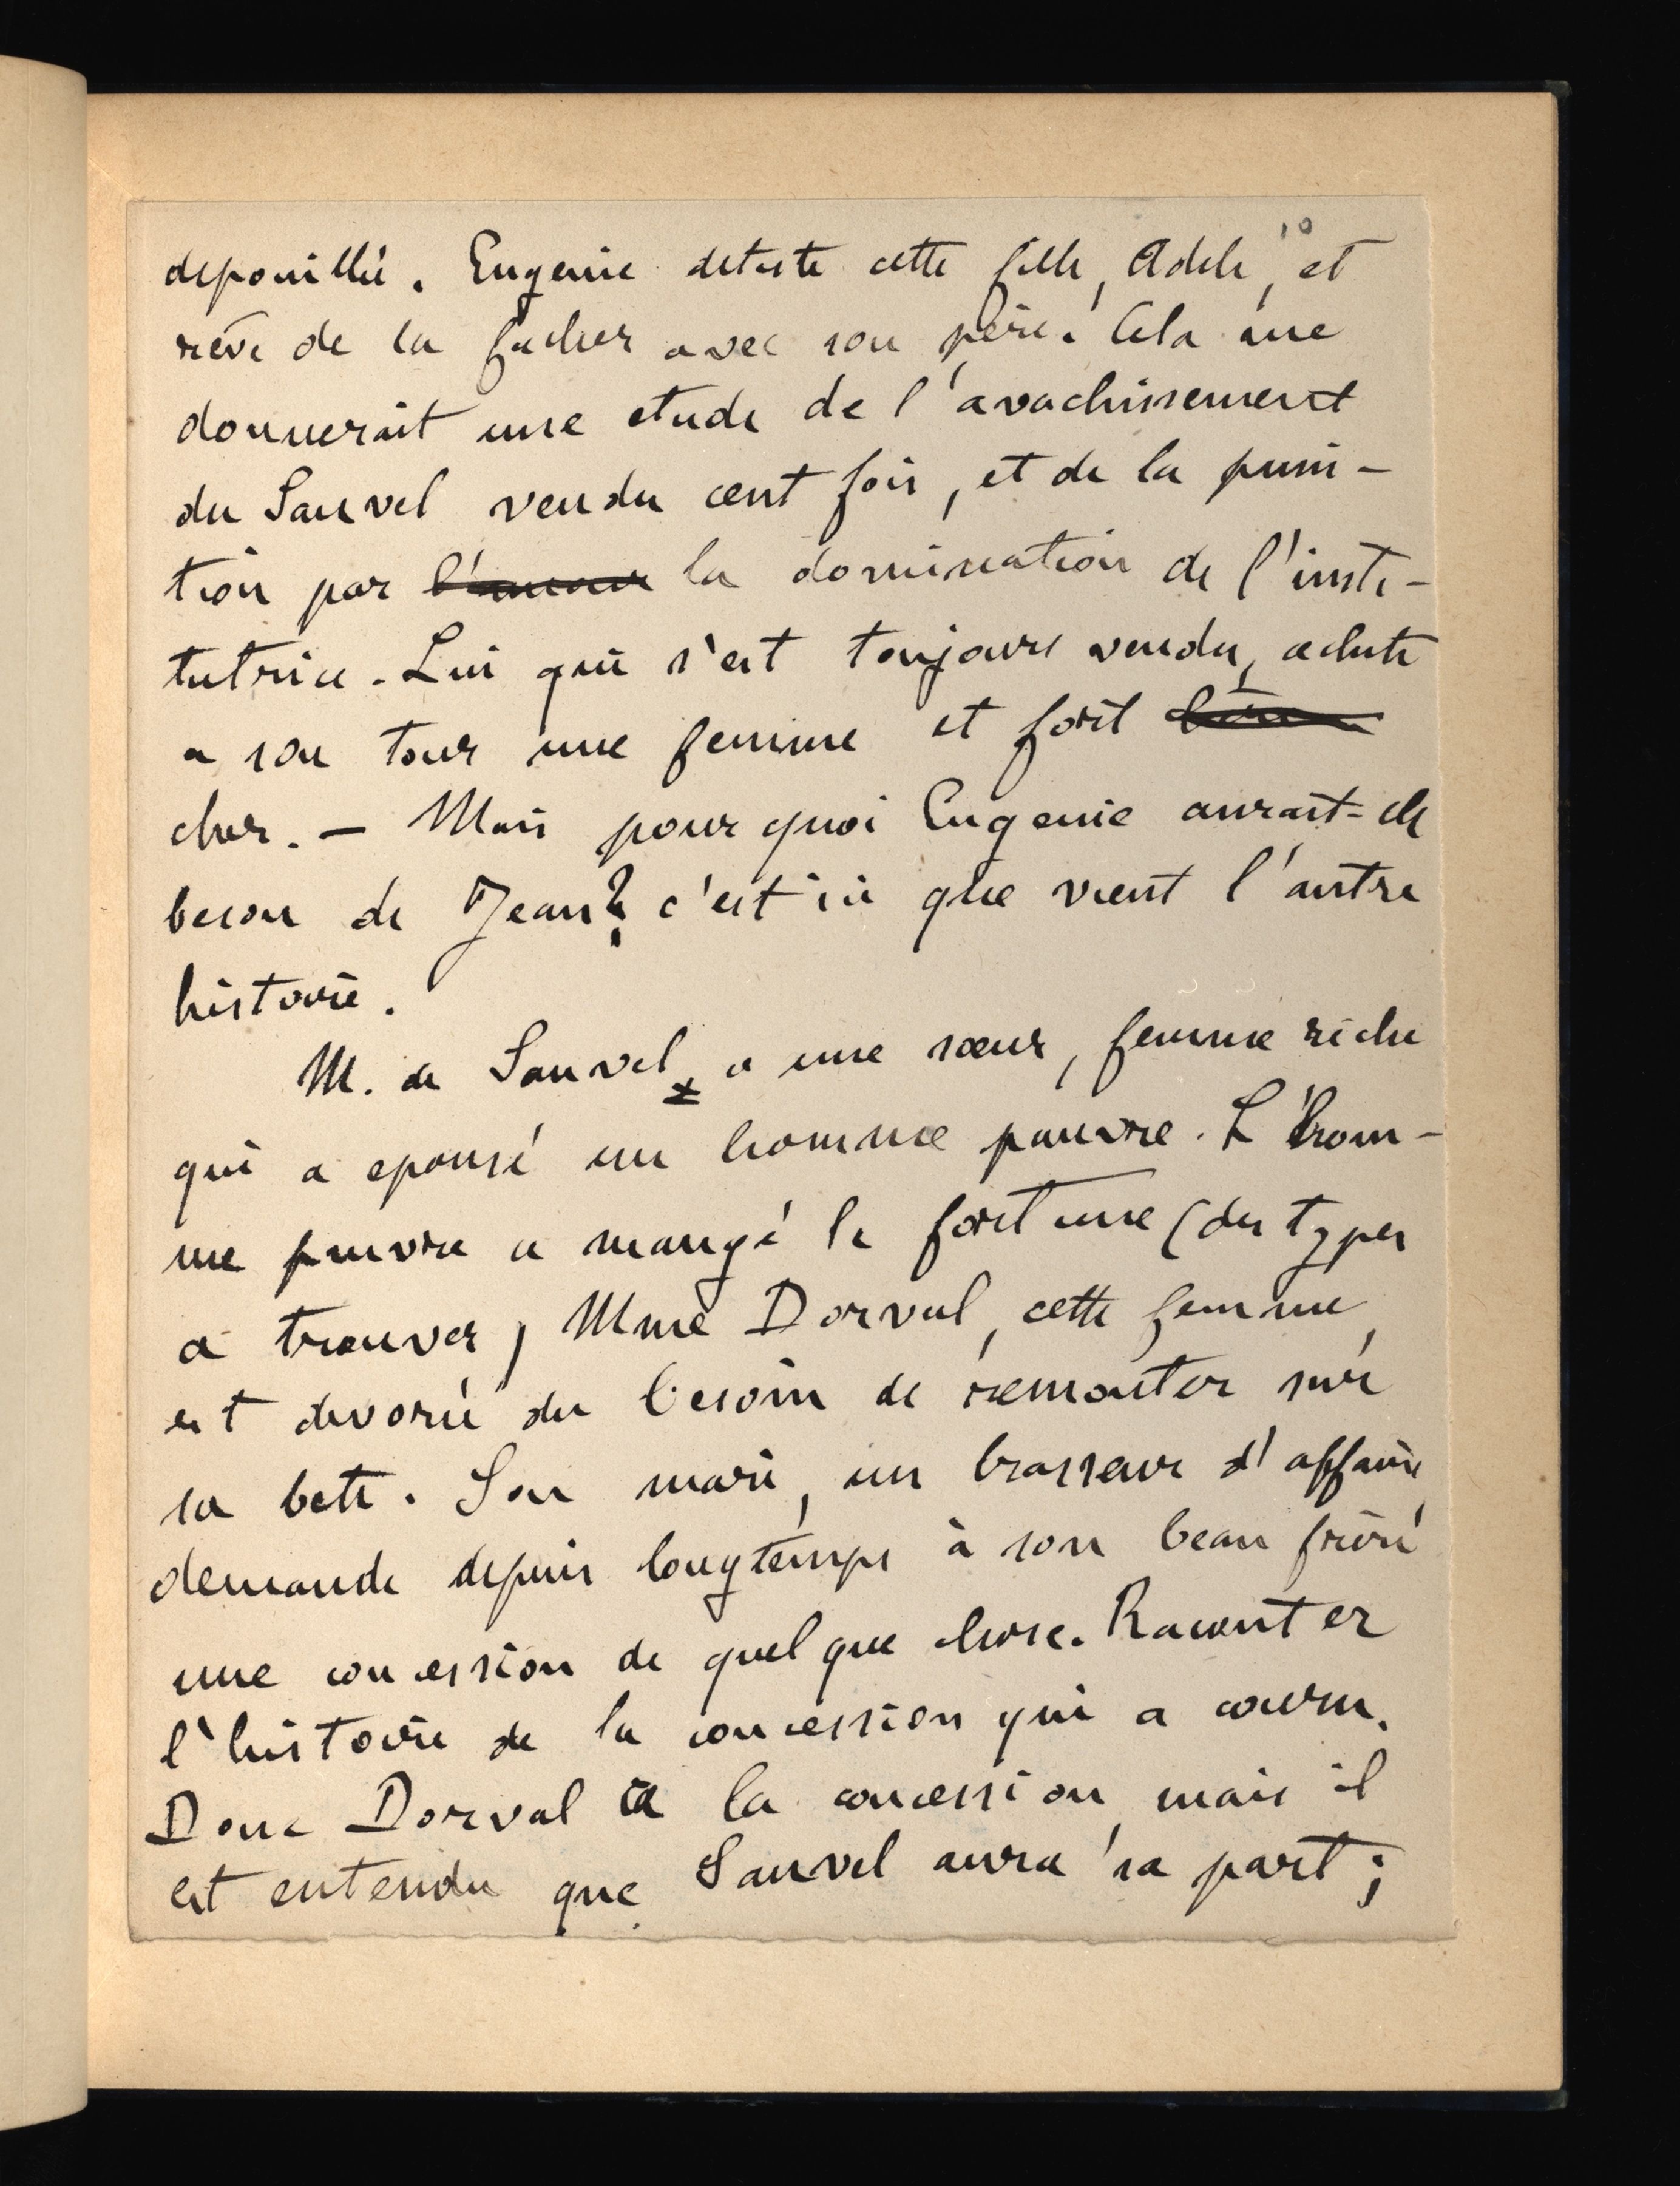 10
depouillée. Eugenie deteste cette fille, Adele, et
rêve de la facher avec son père. Cela me
donnerait une etude de l'avachissement
du Sauvel vendu cent fois, et de la puni-
tion par l'amour la domination de l'insti-
tutrice. Lui qui s'est toujours vendu, achete
a son tour une femme et fort
cher. — Mais pourquoi Eugenie aurait-elle
besoin de Jean? c'est ici que vient l'autre
histoire.
M. de Sauvel a une sœur, femme riche
qui a epousé un homme pauvre. L'hom-
me pauvre a mangé la fortune (des types
a trouver) Mme Dorval, cette femme,
est devorée du besoin de remonter sur
sa bete. Son mari, un brasseur d'affaire,
demande depuis longtemps à son beau frère
une concession de quelque chose. Raconter
l'histoire de la concession qui a couru.
Donc Dorval a la concession, mais il
est entendu que Sauvel aura sa part;